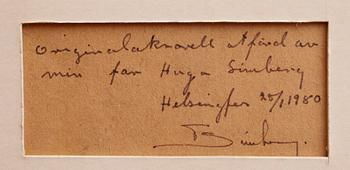 Originalakvarell utförd av
min far Hugo Simberg
Helsingfors 25/1 1980
Simberg.